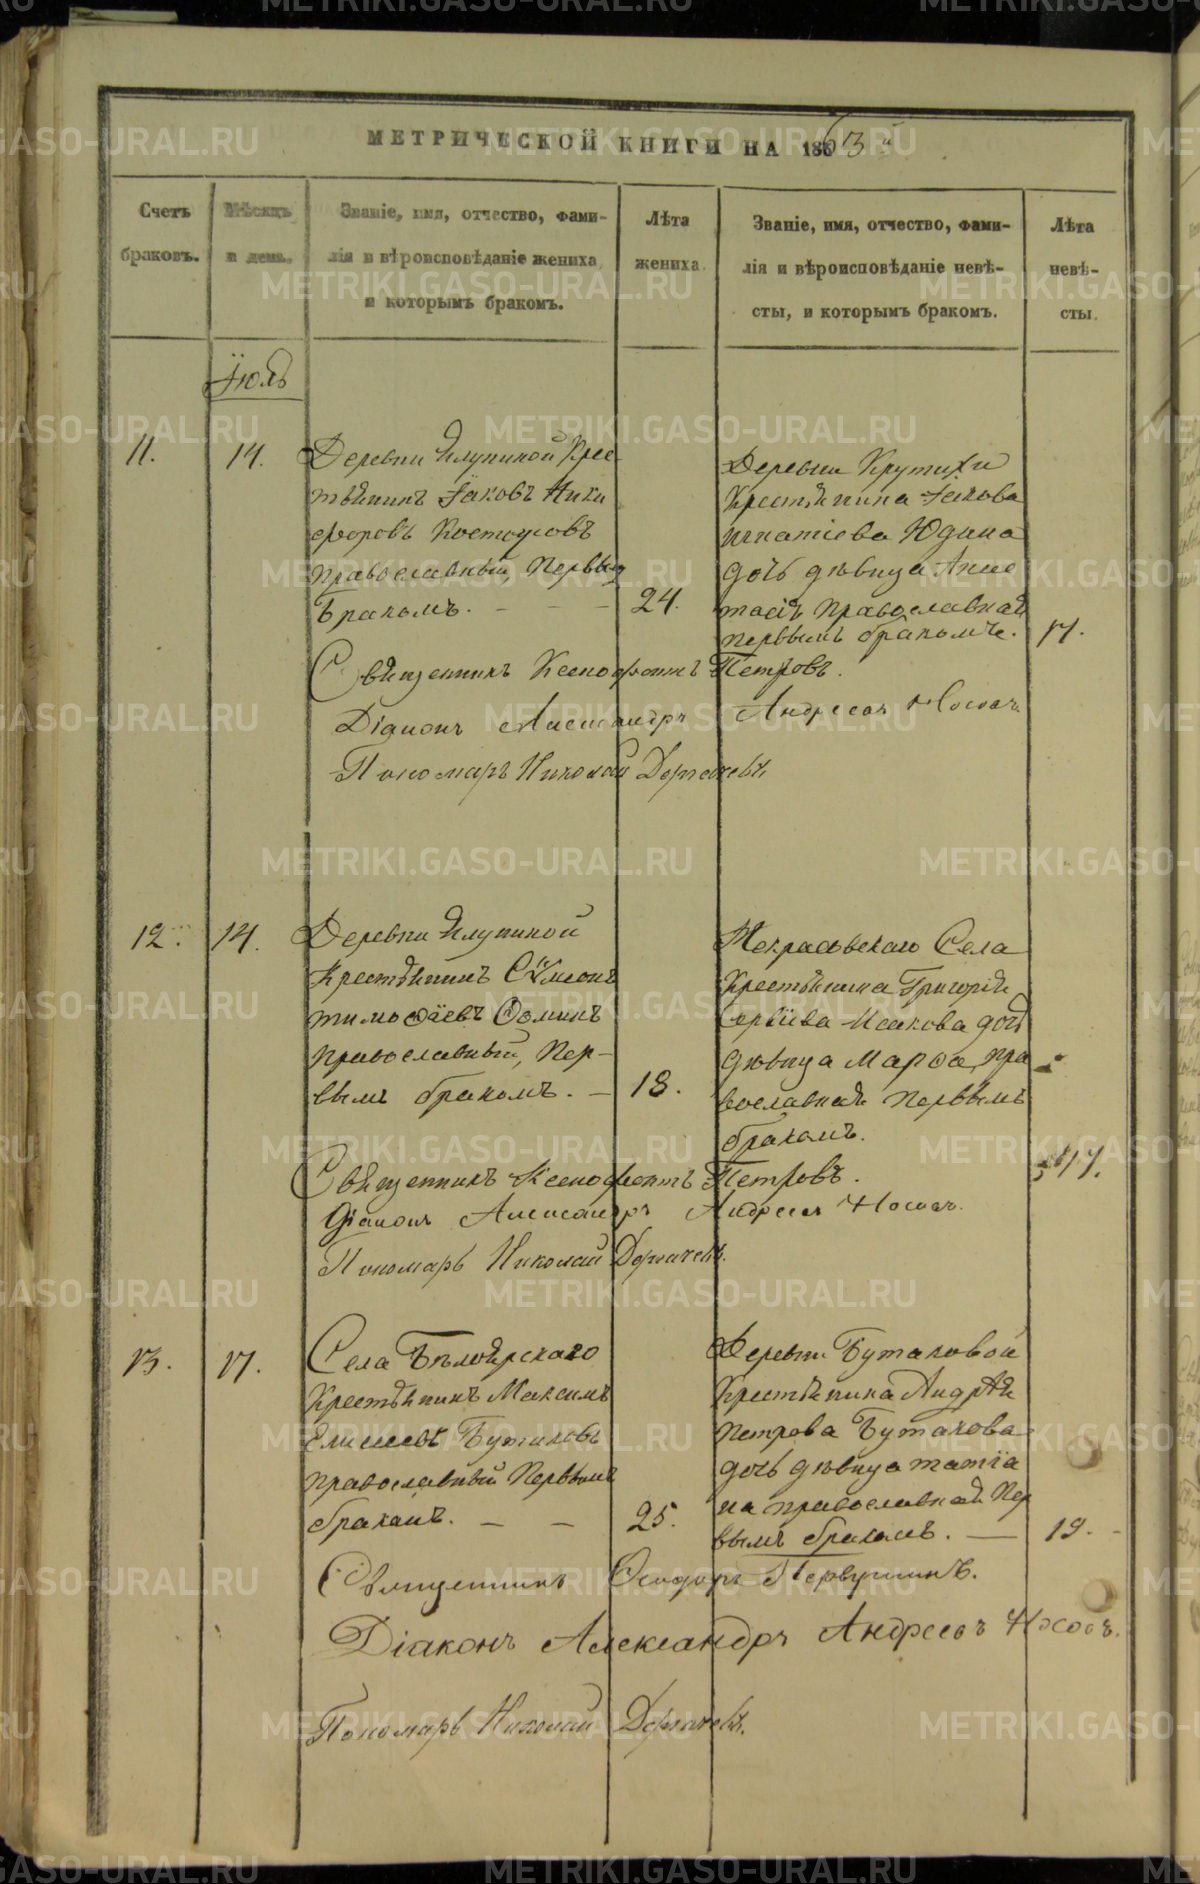 МЕТРИЧЕСКОЙ КНИГИ НА 1863 й
Счетъ браковъ.
Мѣсяцъ и день.
Званіе, имя, отчество, фами-
лія и вѣроисповѣданіе жениха
и которымъ бракомъ.
Лѣта жениха.
Званіе, имя, отчество, фами-
лія и вѣроисповѣданіе невѣ-
сты, и которымъ бракомъ.
Лѣта невѣ-
сты.
Іюль
11.
14.
Деревни Ялуниной Крес
тьянинъ Іаковъ Ники
форовъ
православный, Первымъ
бракомъ.
24.
Деревни Крутихи
Крестьянина Іакова
игнатіева Юдина
дочь дѣвица Анас
тасія православная
первымъ бракомъ.
17.
Священникъ Ксенофонтъ Петровъ.
Діаконъ Александръ Андреевъ Носовъ
Пономарь Николай Дергачевъ
12.
14.
Деревни Ялуниной
Крестьянинъ Сѵмеонъ
тимоѳеевъ Ѳоминъ
православный, Пер-
вымъ бракомъ.
18.
Некрасовскаго Села
Крестьянина Григорія
Сергіева Исакова дочь
дѣвица Марѳа, пра
вославная Первымъ
бракомъ.
17.
Священникъ Ксенофонтъ Петровъ.
Діаконъ Александръ Андреевъ Носовъ.
Пономарь Николай Дергачевъ.
13.
17.
Села Бѣлоярскаго
Крестьянинъ Максимъ
Елисеевъ Бутаковъ
православный Первымъ
бракомъ.
25.
Деревни Бутаковой
Крестьянина Андрея
Петрова Бутакова
дочь дѣвица татіа
на православная Пер
вымъ бракомъ.
19.
Священникъ Ѳеодоръ Первушинъ.
Діаконъ Александръ Андреевъ Носовъ.
Пономарь Николай Дергачевъ.
METRIKI.GASO-URAL.RU